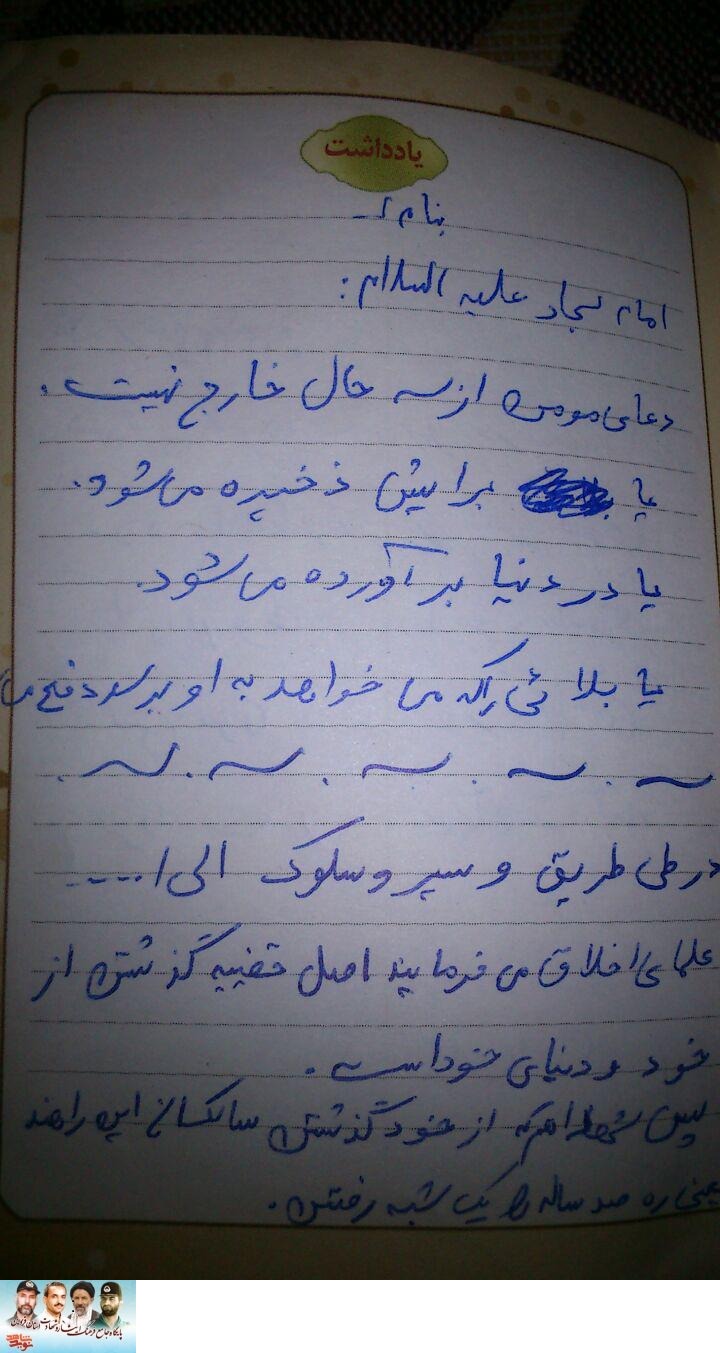 یادداشت
بنام
امام سجاد علیه السلام:
دعای مومن از سه حال خارج نیست.
یا برایش ذخیره می شود.
یا در دنیا برآورده می شود.
یا بلائی را که می خواهد به او برسد دفع می
در طی طریق و سیر و سلوک الی ا.....
علمای اخلاق می فرمایند اصل قضیه گذشتن از
خود و دنیای خود است.
پس شهدا هم که از خود گذشتن سالکان این راهند
یعنی ره صد ساله را یک شبه رفتن.
پایگاه جامع فرهنگ ایثار و شهادت استان قزوین
نوید شاهد